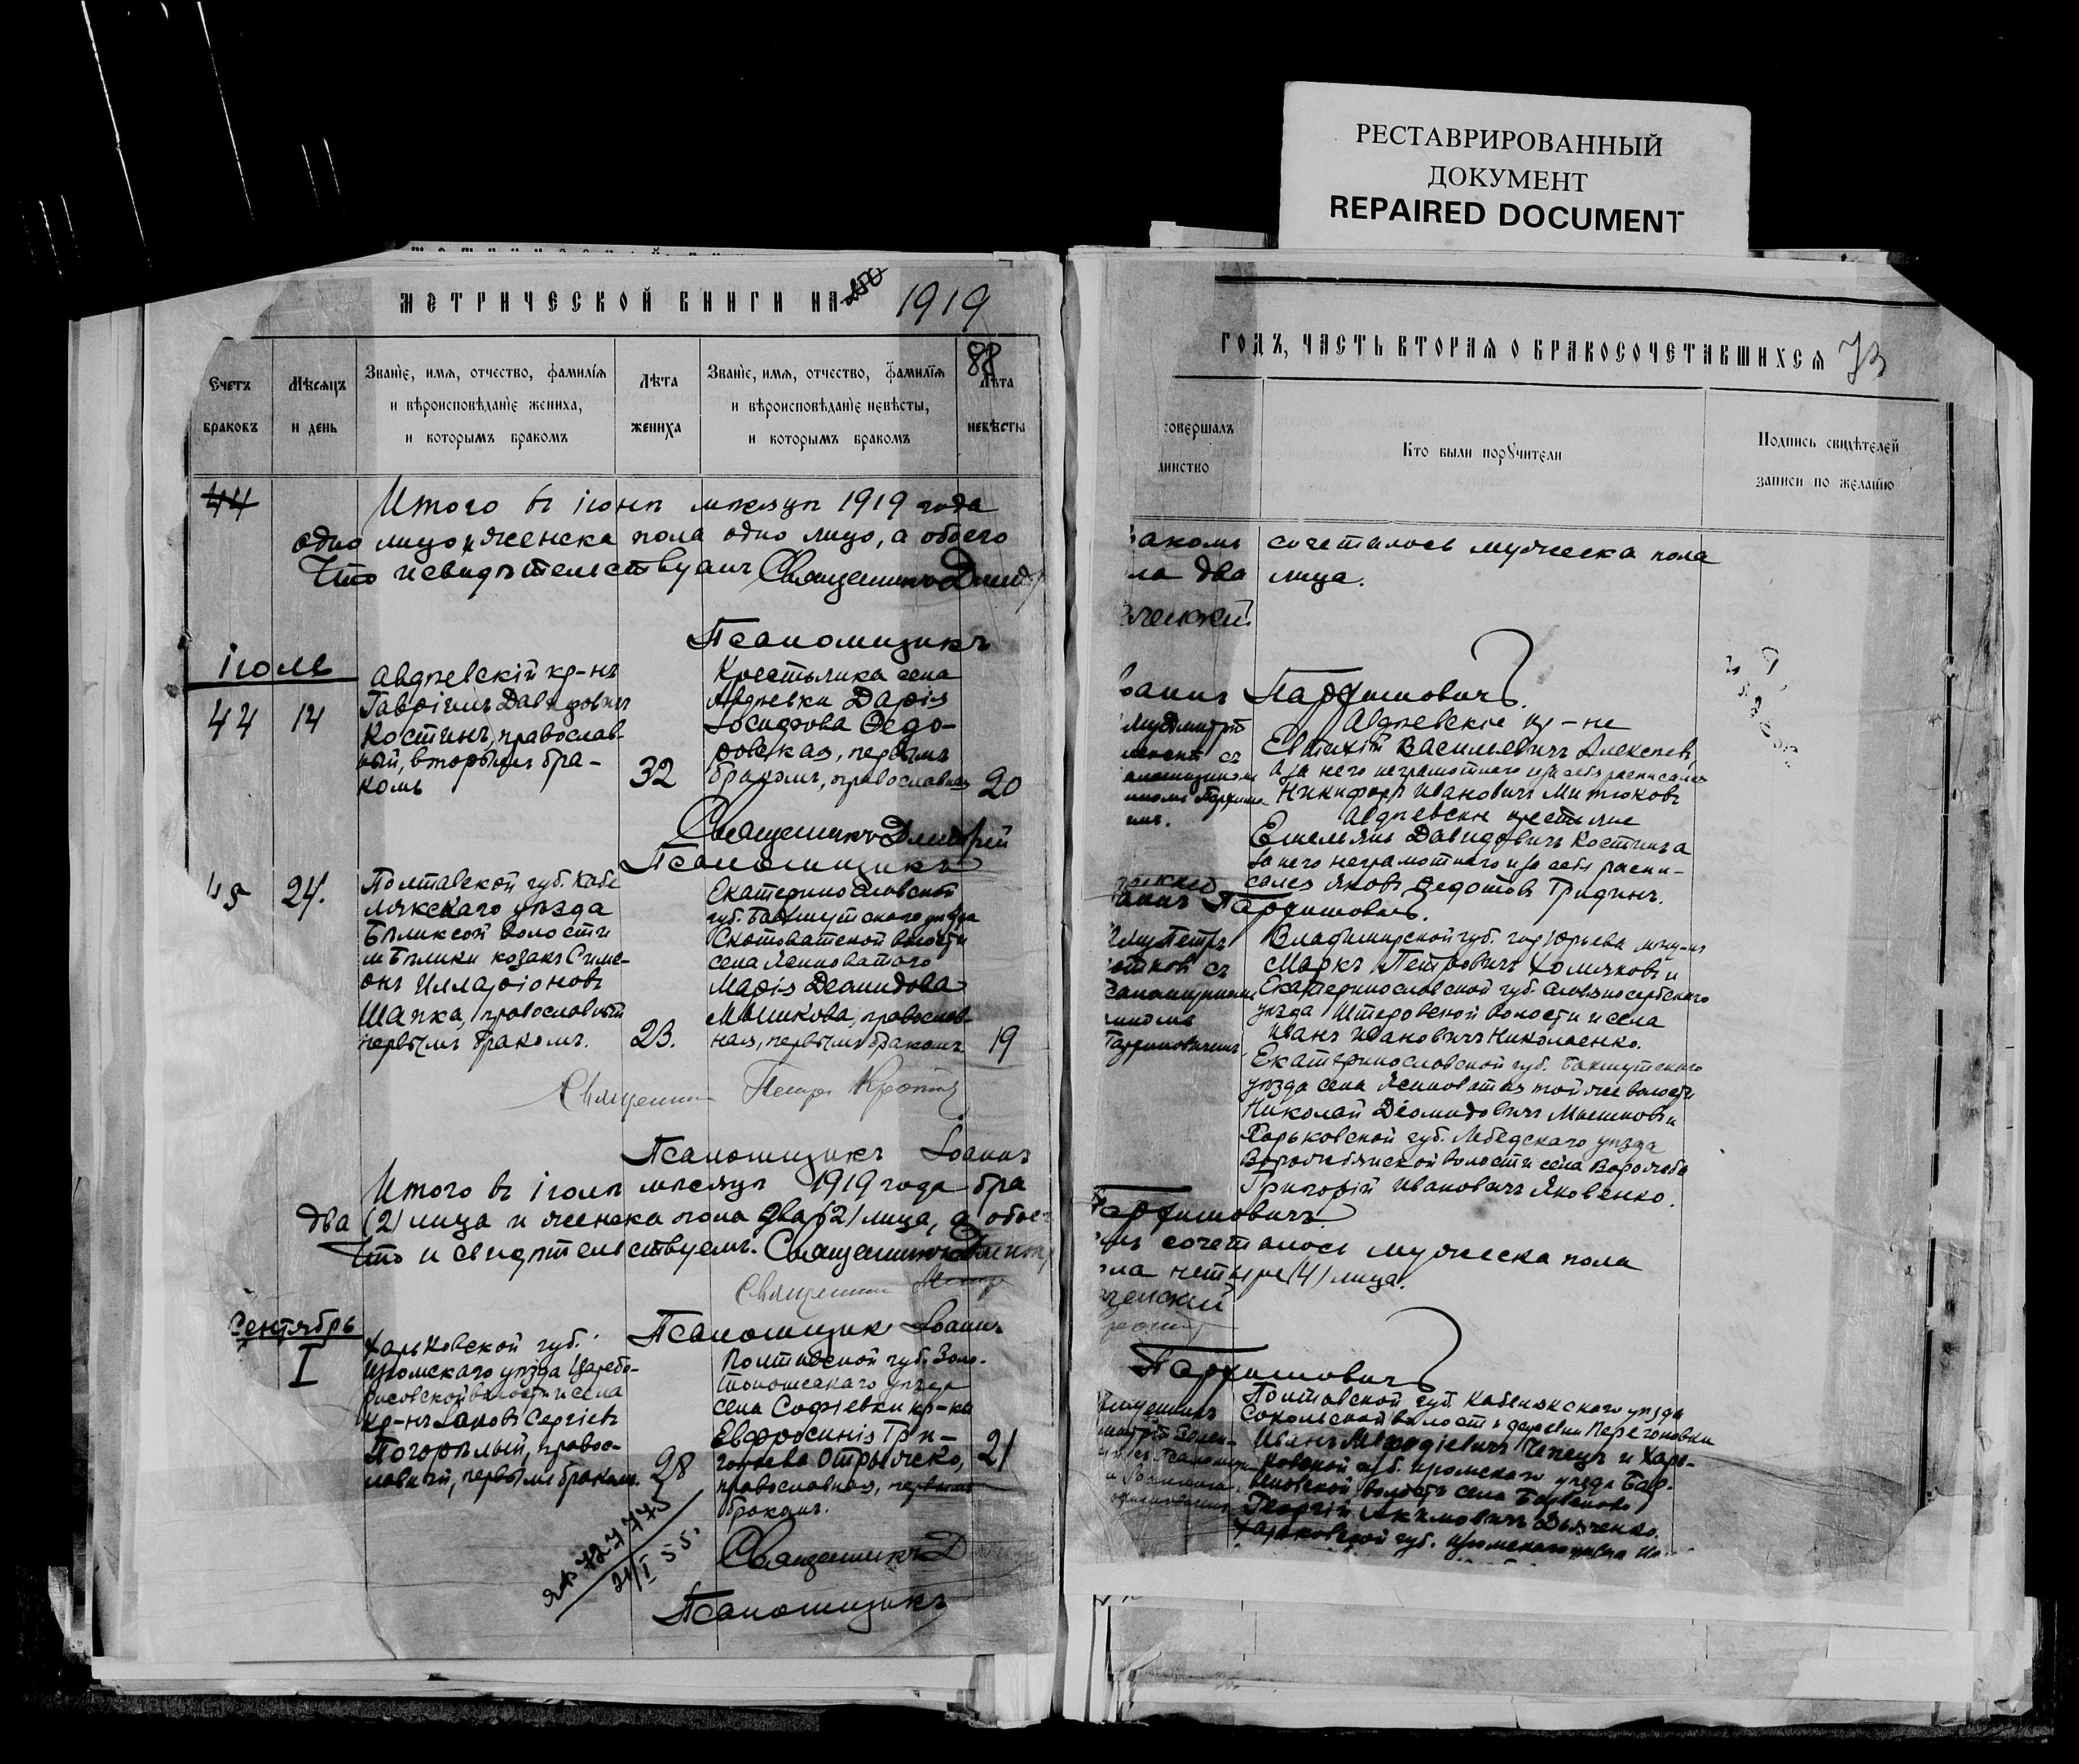 РЕСТАВРИРОВАННЫЙ
ДОКУМЕНТ
REPAIRED DOCUMENT
МЕТРИЧЕСКОЙ КНИГИ НА 1919
88
Счетъ браковъ
Мѣсяцъ и день
Званіе, имя, отчество, фамилія
и вѣроисповѣданіе жениха,
и которымъ бракомъ
Лѣта жениха
Званіе, имя, отчество, фамилія
и вѣроисповѣданіе невѣсты,
и которымъ бракомъ
Лѣта невѣсты
44
Итого въ іюнѣ мѣсяцѣ 1919 года
одно лицо и женска пола одно лицо, а обоего
Что и свидѣтельствуемъ Священникъ
Псаломщикъ
Іюль
44
14
Авдѣевскій кр-нъ
Гавріилъ Давидовичъ
Костинъ, православ-
ный, вторымъ бра-
комъ
32
Крестьянка села
Авдѣевки Дарія
Іосифова Ѳедо-
ровская, первымъ
бракомъ, православная
20
Священникъ Димитрій
Псаломщикъ
45
24.
Полтавской губ. Кобе
лякскаго уѣзда
Бѣликской волости
м. Бѣлики козакъ Симе-
онъ Илларіоновъ
Шапка, православный
первымъ бракомъ.
23.
Екатеринославской
губ. Бахмутскаго уѣзда
Скотоватской волости
села Ясиноватого
Марія Деомидова
Мышкова, православ-
ная, первымъ бракомъ
19
Священникъ Петръ
Псаломщикъ Іоаннъ
Итого въ іюлѣ мѣсяцѣ 1919 года бра
два (2) лица и женска пола два (2) лица, а обоег
Что и свидѣтельствуемъ. Священникъ
Священникъ Петръ
Псаломщикъ Іоаннъ
Сентябрь
1
Харьковской губ.
Изюмскаго уѣзда Царебо-
рисовской волости и села
кр-нъ Іаковъ Сергіевъ
Погорѣлый, правос-
лавный, первымъ бракомъ.
28
Полтавской губ. Золо-
тоношскаго уѣзда
села Софіевки кр-ка
Евфросинія Гри-
горьева
православная, первымъ
бракомъ.
21
Священникъ Д
Псаломщикъ
727775
21/I 55.
ГОДЪ, ЧАСТЬ ВТОРАЯ О БРАКОСОЧЕТАВШИХСЯ 73
совершалъ
таинство
Кто были поручители
Подпись свидѣтелей
записи по желанію
бракомъ сочеталось мужеска пола
ла два лица.
Парфимовичъ.
Авдѣевскіе кр-не
Евтихій Васильевичъ Алексѣевъ,
а за него неграмотного и за себя расписался
Никифоръ Ивановичъ Митюковъ
Авдѣевскіе крестьяне
Емельянъ Давидовичъ Костинъ а
за него неграмотного и за себя распи-
сался Яковъ Федотовъ Гридинъ.
Парфимовичъ.
Владимирской губ. гор. Юрьева
Маркъ Петровичъ Хомяковъ и
Екатеринославской губ. Славяносербскаго
уѣзда Штеровской волости и села
Иванъ Ивановичъ Николаенко.
Екатеринославской губ. Бахмутскаго
уѣзда села Ясиноватая той же волости
Николай Діомидовичъ Мышковъ и
Харьковской губ. Лебедскаго уѣзда
Ворожбянской волости села Ворожба
Григорій Ивановичъ Яковенко.
Парфимовичъ
сочеталось мужеска пола
ла четыре (4) лица.
Парфимовичъ
Полтавской губ. Кобелякскаго уѣзда
Сокольской волости деревни Перегоновки
Иванъ Чепецъ и Харь-
ковской губ. Изюмскаго уѣзда Бар-
венковской волости села Барвенково
Георгій Акимовичъ Дьяченко.
Харьковской губ. Изюмскаго уѣзда